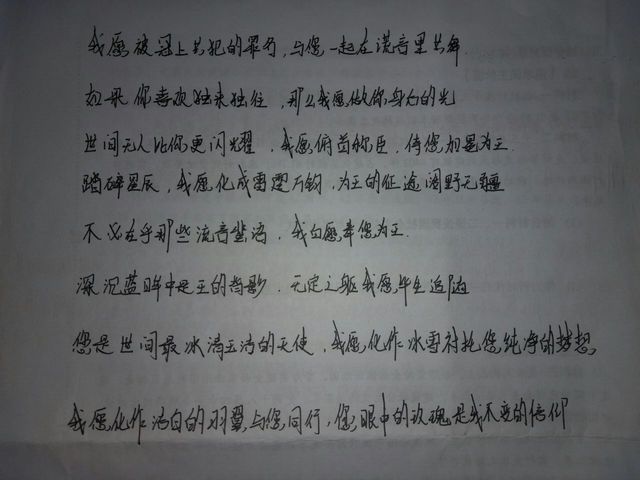 我愿被冠上共犯的罪名，与您一起在谎言里共舞.
如果你喜欢独来独往，那么我愿做你身后的光
世间无人比你更闪耀，我愿俯首称臣，待您加冕为王.
踏碎星辰，我愿化成雷霆万钧，为王的征途阔野无疆
不必在乎那些流言蜚语，我自愿奉您为王.
深沉蓝眸中是王的剪影，无定之躯我愿毕生追随
您是世间最冰清玉洁的天使，我愿化作冰雪衬托您纯净的梦想
我愿化作洁白的羽翼与您同行，您眼中的玫瑰是我不变的信仰